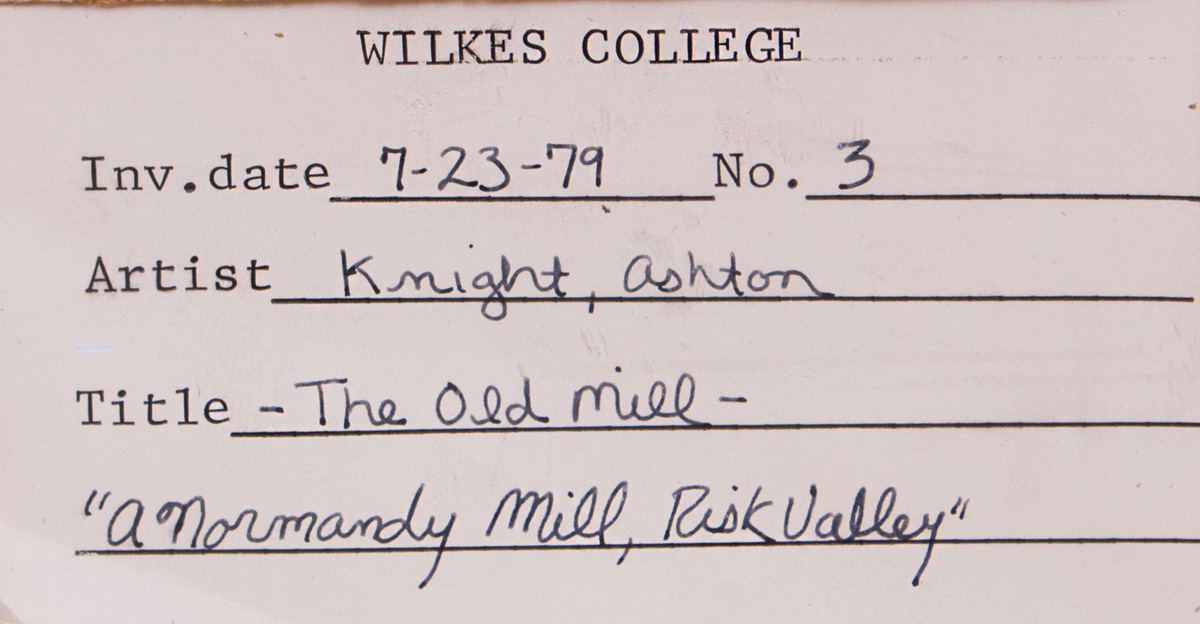 WILKES COLLEGE
Inv.date 7-23-79 No. 3
Artist Knight, Ashton
Title - The Old Mill -
"A Normandy Mill, Risk Valley"